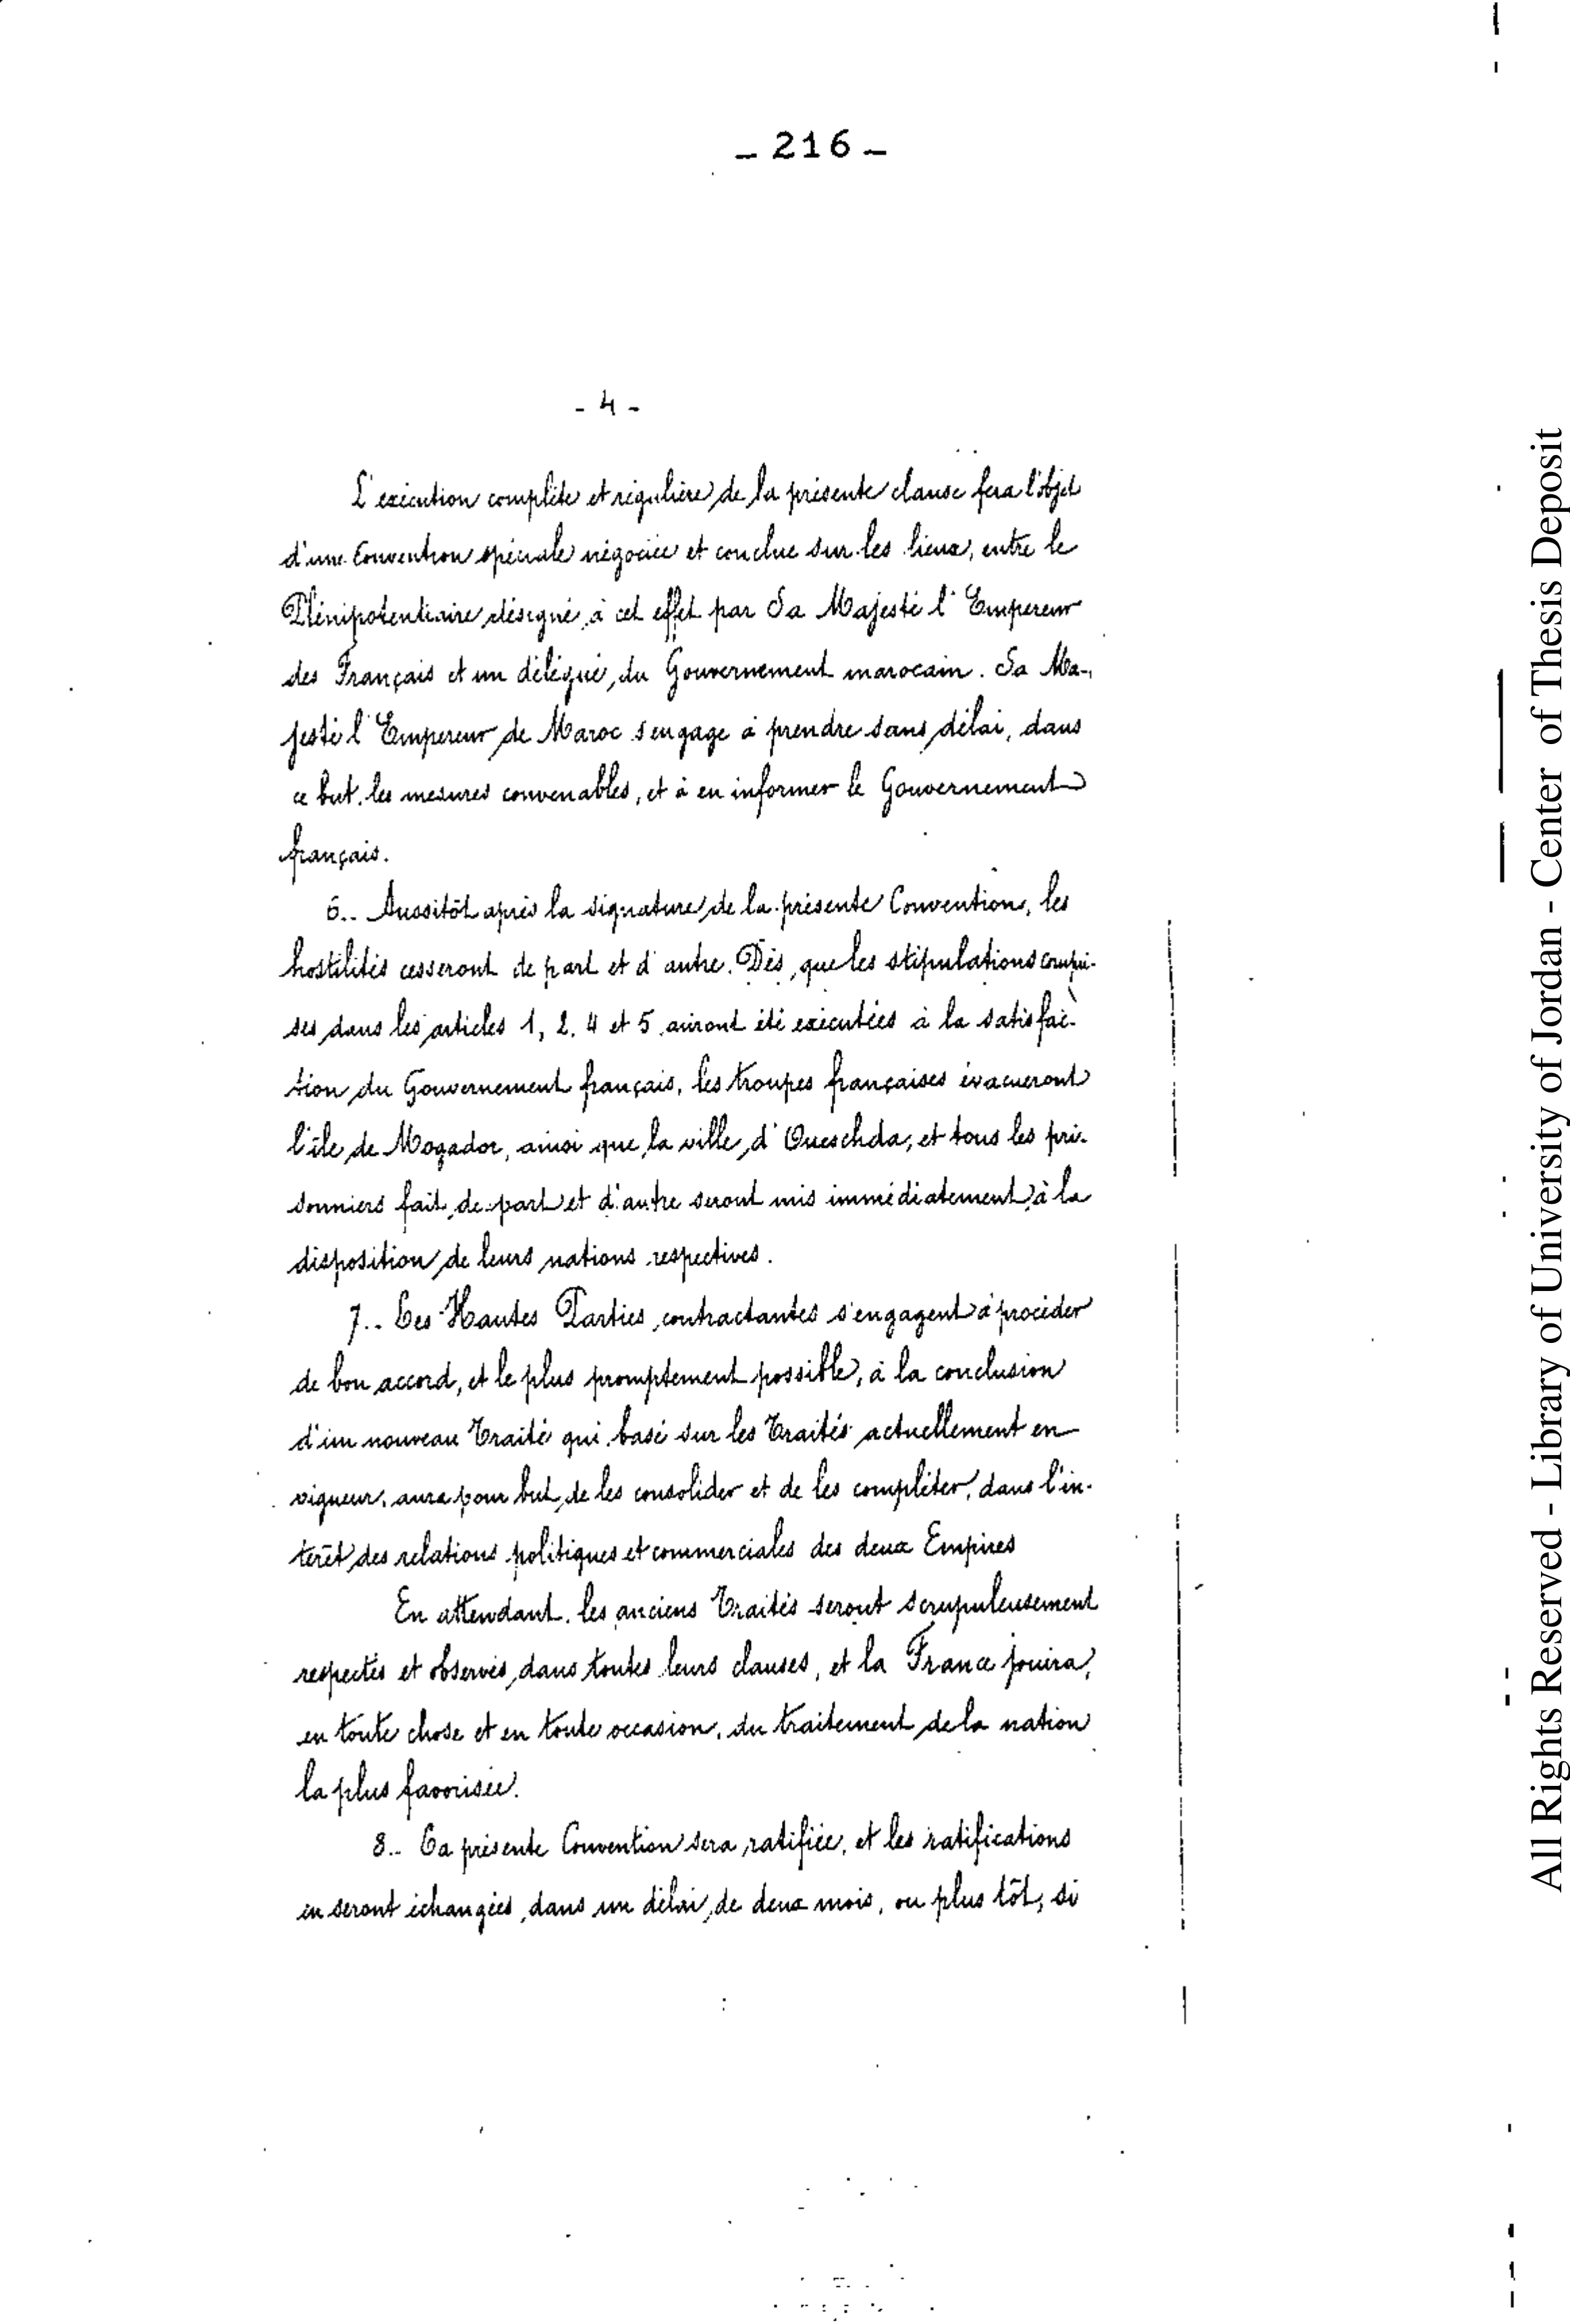 _ 216 _
- 4 -
L'exécution complète et régulière de la présente clause fera l'objet
d'une Convention spéciale négociée et conclue sur les lieux, entre le
Plénipotentiaire désigné à cet effet par Sa Majesté l'Empereur
des Français et un délégué du Gouvernement marocain. Sa Ma-
jesté l'Empereur de Maroc s'engage à prendre sans délai, dans
ce but, les mesures convenables, et à en informer le Gouvernement
français.
6.. Aussitôt après la signature de la présente Convention, les
hostilités cesseront de part et d'autre. Dès que les stipulations compri-
ses dans les articles 1, 2, 4 et 5 auront été exécutées à la satisfac-
tion du Gouvernement français, les troupes françaises évacueront
l'île de Mogador, ainsi que la ville d'Oueschda, et tous les pri-
sonniers fait de part et d'autre seront mis immédiatement à la
disposition de leurs nations respectives.
7.. Les Hautes Parties contractantes s'engagent à procéder
de bon accord, et le plus promptement possible, à la conclusion
d'un nouveau Traité qui, basé sur les Traités actuellement en
vigueur, aura pour but de les consolider et de les compléter, dans l'in-
térêt des relations politiques et commerciales des deux Empires
En attendant, les anciens Traités seront scrupuleusement
respectés et observés dans toutes leurs clauses, et la France jouira,
en toute chose et en toute occasion, du traitement de la nation
la plus favorisée.
8.. La présente Convention sera ratifiée, et les ratifications
en seront échangées, dans un délai de deux mois, ou plus tôt, si
All Rights Reserved - Library of University of Jordan - Center of Thesis Deposit